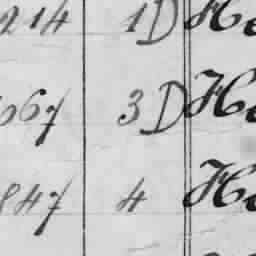 214 1D He
067 3D He
847 4 He